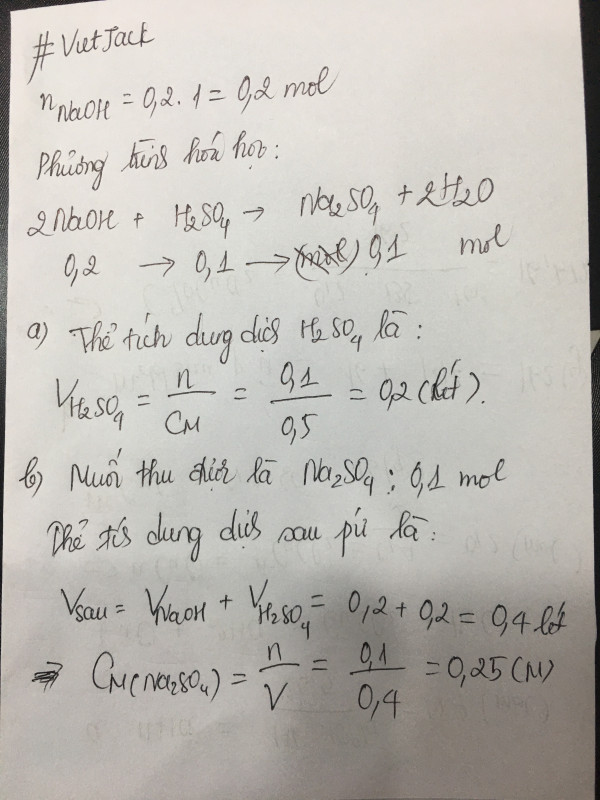 #VietJack
n NaOH = 0,2 . 1 = 0,2 mol
Phương trình hoá học:
2NaOH + H2SO4 → Na2SO4 + 2H2O
0,2 → 0,1 → (mol) 0,1 mol
a) Thể tích dung dịch H2SO4 là:
V H2SO4 = n / CM = 0,1 / 0,5 = 0,2 (lít).
b) Muối thu được là Na2SO4 : 0,1 mol
Thể tís dung dịs sau pứ là:
Vsau = VNaOH + VH2SO4 = 0,2 + 0,2 = 0,4 lít
⇒ CM(Na2SO4) = n / V = 0,1 / 0,4 = 0,25 (M)